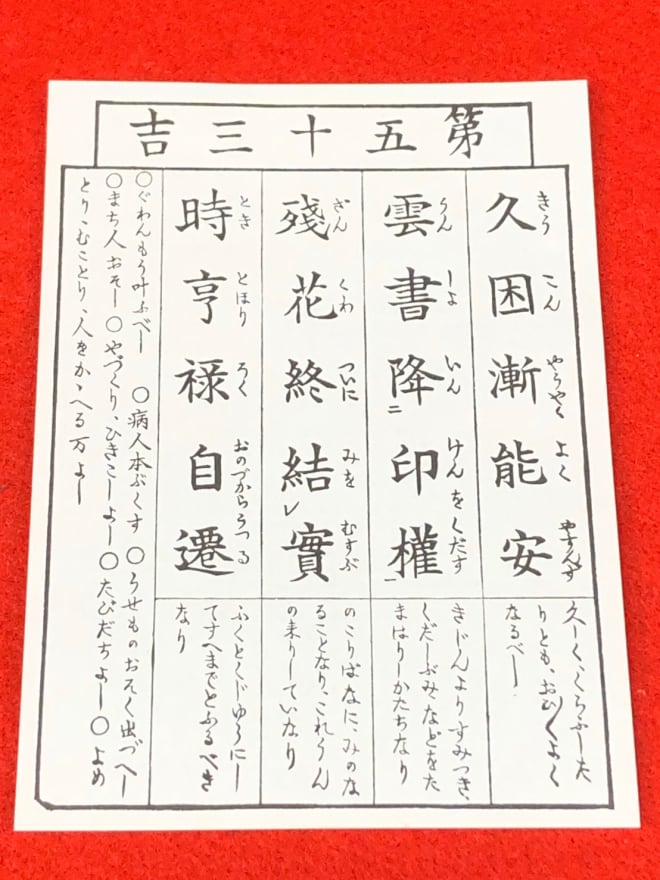 第五十三吉
きう こん やうやく よく やすんず
久困漸能安
久しく、くらふした
りとも、おひ〳〵よく
なるべし
うん しよ いん けんをくだす
雲書降二印權一
きじんよりすみつき、
くだしぶみなどをた
まはりしかたちなり
ざん くわ ついに みを むすぶ
殘花終結レ實
のこりばなに、みのな
ることなり、これうん
の来りしていなり
とき とほり ろく おのづからうつる
時亨禄自遷
ふくとくじゆうにし
てすへまでとふるべき
なり
〇ぐわんもう叶ふべし 〇病人本ぶくす 〇うせものおそく出づべし
〇まち人おそし 〇やづくり、ひきこしよし 〇たびだちよし 〇よめ
とり、むことり、人をかゝへる万よし